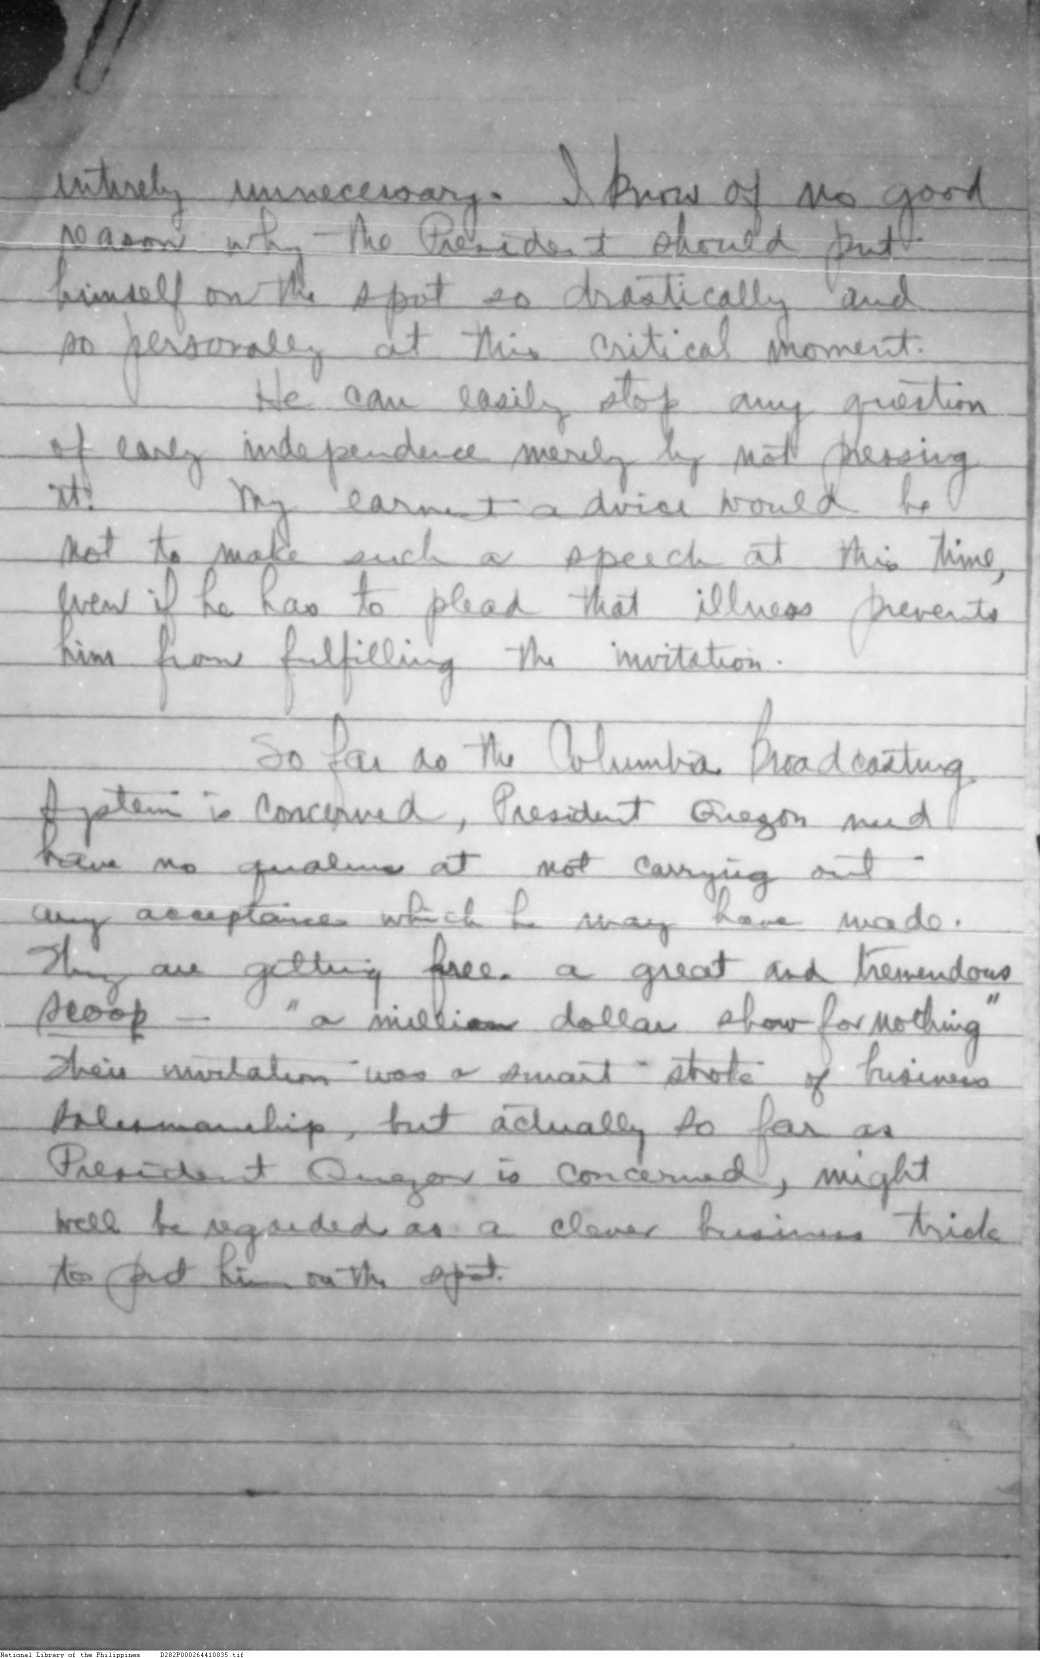 entirely unnecessary. I know of no good
reason why the President should put
himself on the spot so drastically and
so personally at this critical moment.
He can easily stop any question
of early independence merely by not pressing
it. My earnest advice would be
not to make such a speech at this time,
even if he has to plead that illness prevents
him from fulfilling the invitation.
So far as the Columbia Broadcasting
System is concerned, President Quezon need
have no qualms at not carrying out
any acceptance which he may have made.
They are getting free a great and tremendous
scoop — "a million dollar show for nothing"
Their invitation was a smart stroke of business
salesmanship, but actually so far as
President Quezon is concerned, might
well be regarded as a clever business trick
to put him on the spot.
National Library of the Philippines D282P000264410035.tif